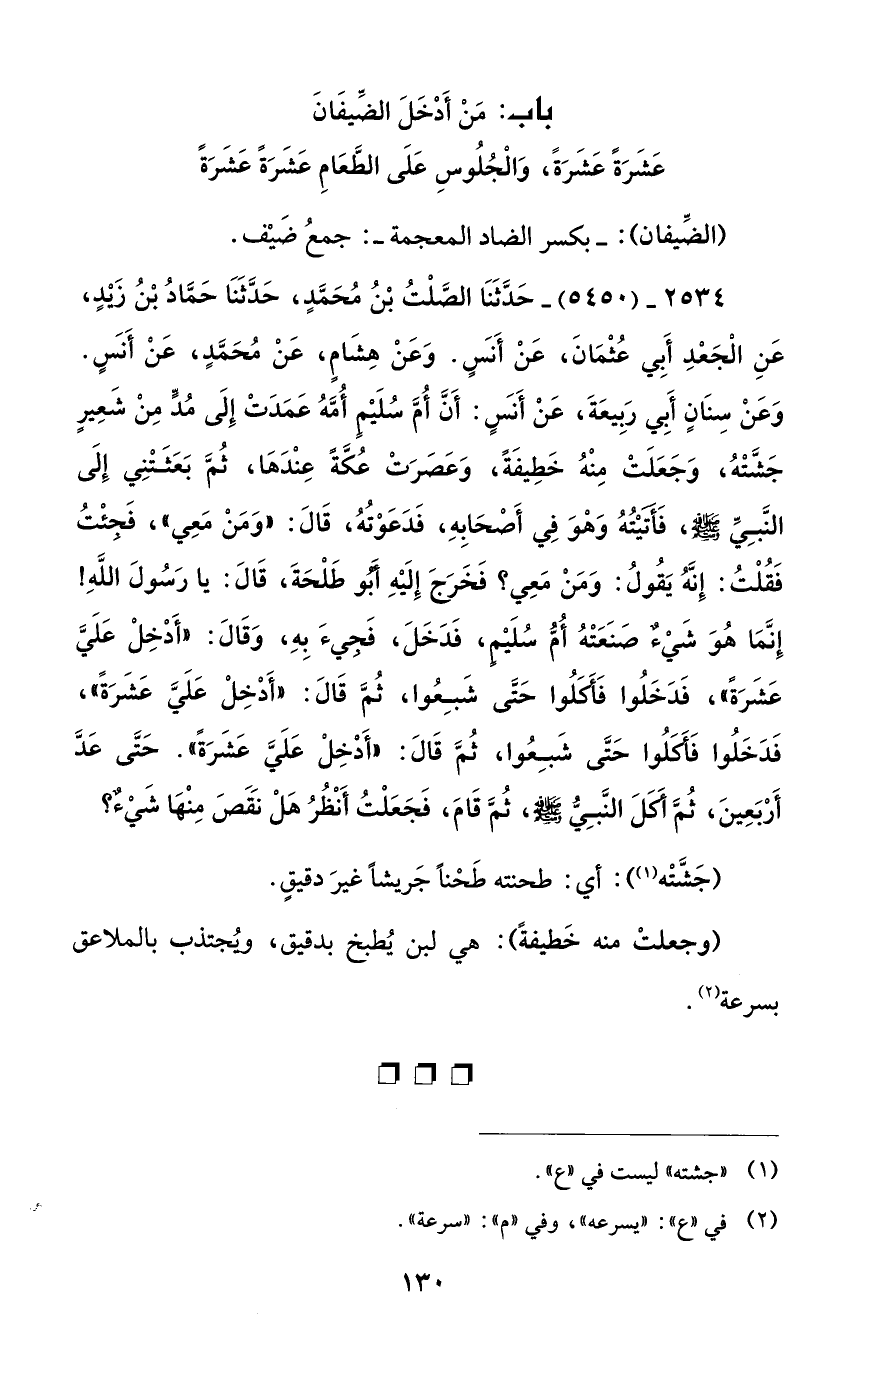 باب: مَنْ أَدْخَلَ الضِّيفَانَ
عَشَرَةً عَشَرَةً، وَالْجُلُوسِ عَلَى الطَّعَامِ عَشَرَةً عَشَرَةً
(الضِّيفان): ـ بكسر الضاد المعجمة ـ: جمعُ ضَيْف.
٢٥٣٤ ـ (٥٤٥٠) ـ حَدَّثَنَا الصَّلْتُ بْنُ مُحَمَّدٍ، حَدَّثَنَا حَمَّادُ بْنُ زَيْدٍ،
عَنِ الْجَعْدِ أَبِي عُثْمَانَ، عَنْ أَنَسٍ. وَعَنْ هِشَامٍ، عَنْ مُحَمَّدٍ، عَنْ أَنَسٍ.
وَعَنْ سِنَانٍ أَبِي رَبِيعَةَ، عَنْ أَنَسٍ: أَنَّ أُمَّ سُلَيْمٍ أُمَّهُ عَمَدَتْ إِلَى مُدٍّ مِنْ شَعِيرٍ
جَشَّتْهُ، وَجَعَلَتْ مِنْهُ خَطِيفَةً، وَعَصَرَتْ عُكَّةً عِنْدَهَا، ثُمَّ بَعَثَتْنِي إِلَى
النَّبِيِّ ﷺ، فَأَتَيْتُهُ وَهْوَ فِي أَصْحَابِهِ، فَدَعَوْتُهُ، قَالَ: «وَمَنْ مَعِي»، فَجِئْتُ
فَقُلْتُ: إِنَّهُ يَقُولُ: وَمَنْ مَعِي؟ فَخَرَجَ إِلَيْهِ أَبُو طَلْحَةَ، قَالَ: يا رَسُولَ اللَّهِ!
إِنَّمَا هُوَ شَيْءٌ صَنَعَتْهُ أُمُّ سُلَيْمٍ، فَدَخَلَ، فَجِيءَ بِهِ، وَقَالَ: «أَدْخِلْ عَلَيَّ
عَشَرَةً»، فَدَخَلُوا فَأَكَلُوا حَتَّى شَبِعُوا، ثُمَّ قَالَ: «أَدْخِلْ عَلَيَّ عَشَرَةً»،
فَدَخَلُوا فَأَكَلُوا حَتَّى شَبِعُوا، ثُمَّ قَالَ: «أَدْخِلْ عَلَيَّ عَشَرَةً». حَتَّى عَدَّ
أَرْبَعِينَ، ثُمَّ أَكَلَ النَّبِيُّ ﷺ، ثُمَّ قَامَ، فَجَعَلْتُ أَنْظُرُ هَلْ نَقَصَ مِنْهَا شَيْءٌ؟
(جَشَّتْه(١)): أي: طحنته طَحْناً جَريشاً غيرَ دقيقٍ.
(وجعلتْ منه خَطيفةً): هي لبن يُطبخ بدقيق، ويُجتذب بالملاعق
بسرعة(٢).
(١) «جشته» ليست في «ع».
(٢) في «ع»: «يسرعه»، وفي «م»: «سرعة».
١٣٠